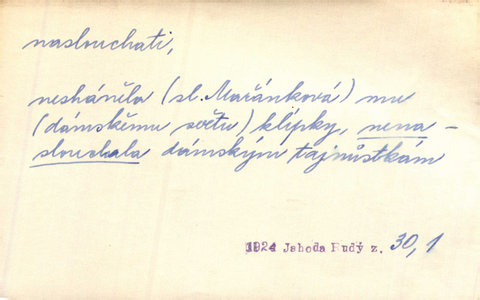 naslouchati,
nesháněla (sl. Mařánková) mu
(dámskému světu) klípky, nena-
slouchala dámským tajnůstkám
1924 Jahoda Rudý z. 30,1